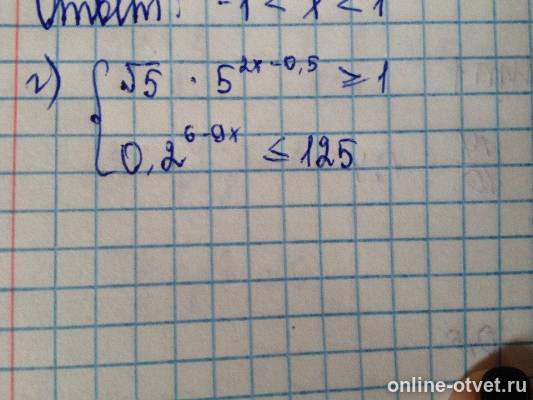 Ответ: -1 < x < 1
г) { √5 · 5^(2x-0,5) ≥ 1
0,2^(6-9x) ≤ 125
online-otvet.ru